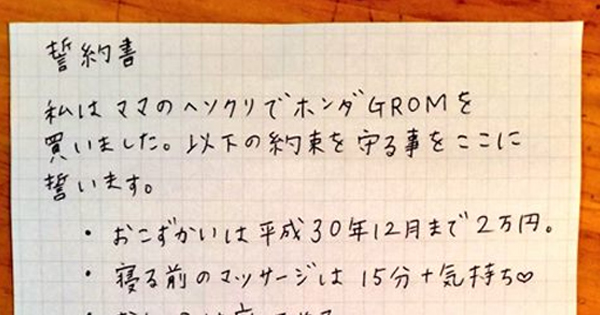 誓約書
私はママのヘソクリでホンダGROMを
買いました。以下の約束を守る事をここに
誓います。
・おこずかいは平成30年12月まで2万円。
・寝る前のマッサージは15分+気持ち♡